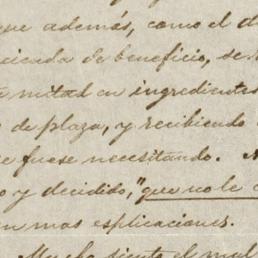 que además, como el d
cienda de beneficio, se
mitad en ingredientes
de plaza, y recibiendo
e fuese necesitando.
o y decidido, "que no le c
n mas esplicaciones.
Mucho siento el mal